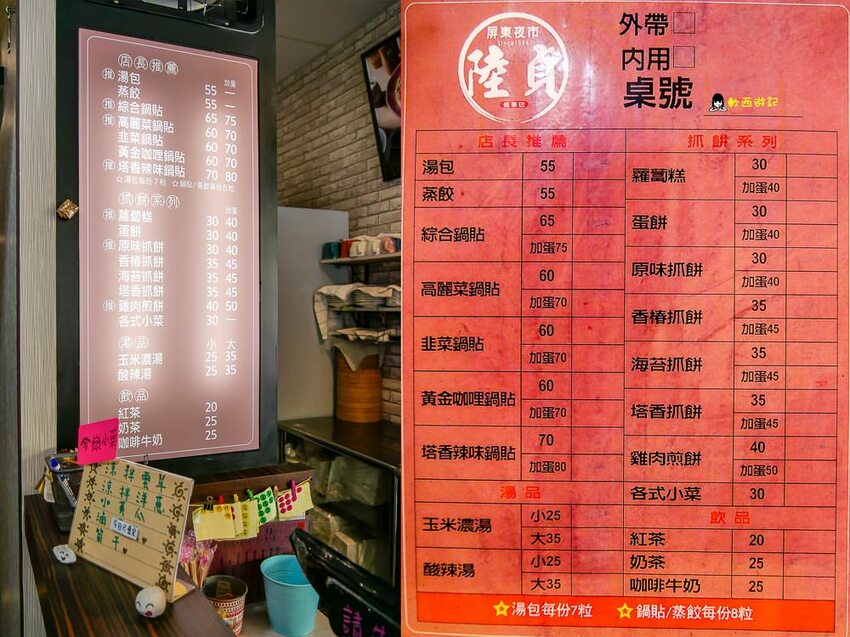 店長推薦
加蛋
推 湯包 55 —
蒸餃 55 —
推 綜合鍋貼 65 75
推 高麗菜鍋貼 60 70
韭菜鍋貼 60 70
黃金咖哩鍋貼 60 70
推 塔香辣味鍋貼 70 80
☆湯包每份7粒 ☆鍋貼/蒸餃每份8粒
抓餅系列
加蛋
推 蘿蔔糕 30 40
蛋餅 30 40
推 原味抓餅 30 40
香椿抓餅 35 45
海苔抓餅 35 45
塔香抓餅 35 45
推 雞肉煎餅 40 50
各式小菜 30 —
湯品 小 大
玉米濃湯 25 35
酸辣湯 25 35
飲品
紅茶 20
奶茶 25
咖啡牛奶 25
今日小菜
涼拌雲耳
涼拌洋蔥
小黃瓜
滷筍干
屏東夜市
Since1994
陸貞
外帶□
內用□
桌號
軟西遊記
店長推薦
湯包 55
蒸餃 55
綜合鍋貼 65
加蛋75
高麗菜鍋貼 60
加蛋70
韭菜鍋貼 60
加蛋70
黃金咖哩鍋貼 60
加蛋70
塔香辣味鍋貼 70
加蛋80
湯品
玉米濃湯 小25
大35
酸辣湯 小25
大35
抓餅系列
蘿蔔糕 30
加蛋40
蛋餅 30
加蛋40
原味抓餅 30
加蛋40
香椿抓餅 35
加蛋45
海苔抓餅 35
加蛋45
塔香抓餅 35
加蛋45
雞肉煎餅 40
加蛋50
各式小菜 30
飲品
紅茶 20
奶茶 25
咖啡牛奶 25
☆湯包每份7粒 ☆鍋貼/蒸餃每份8粒